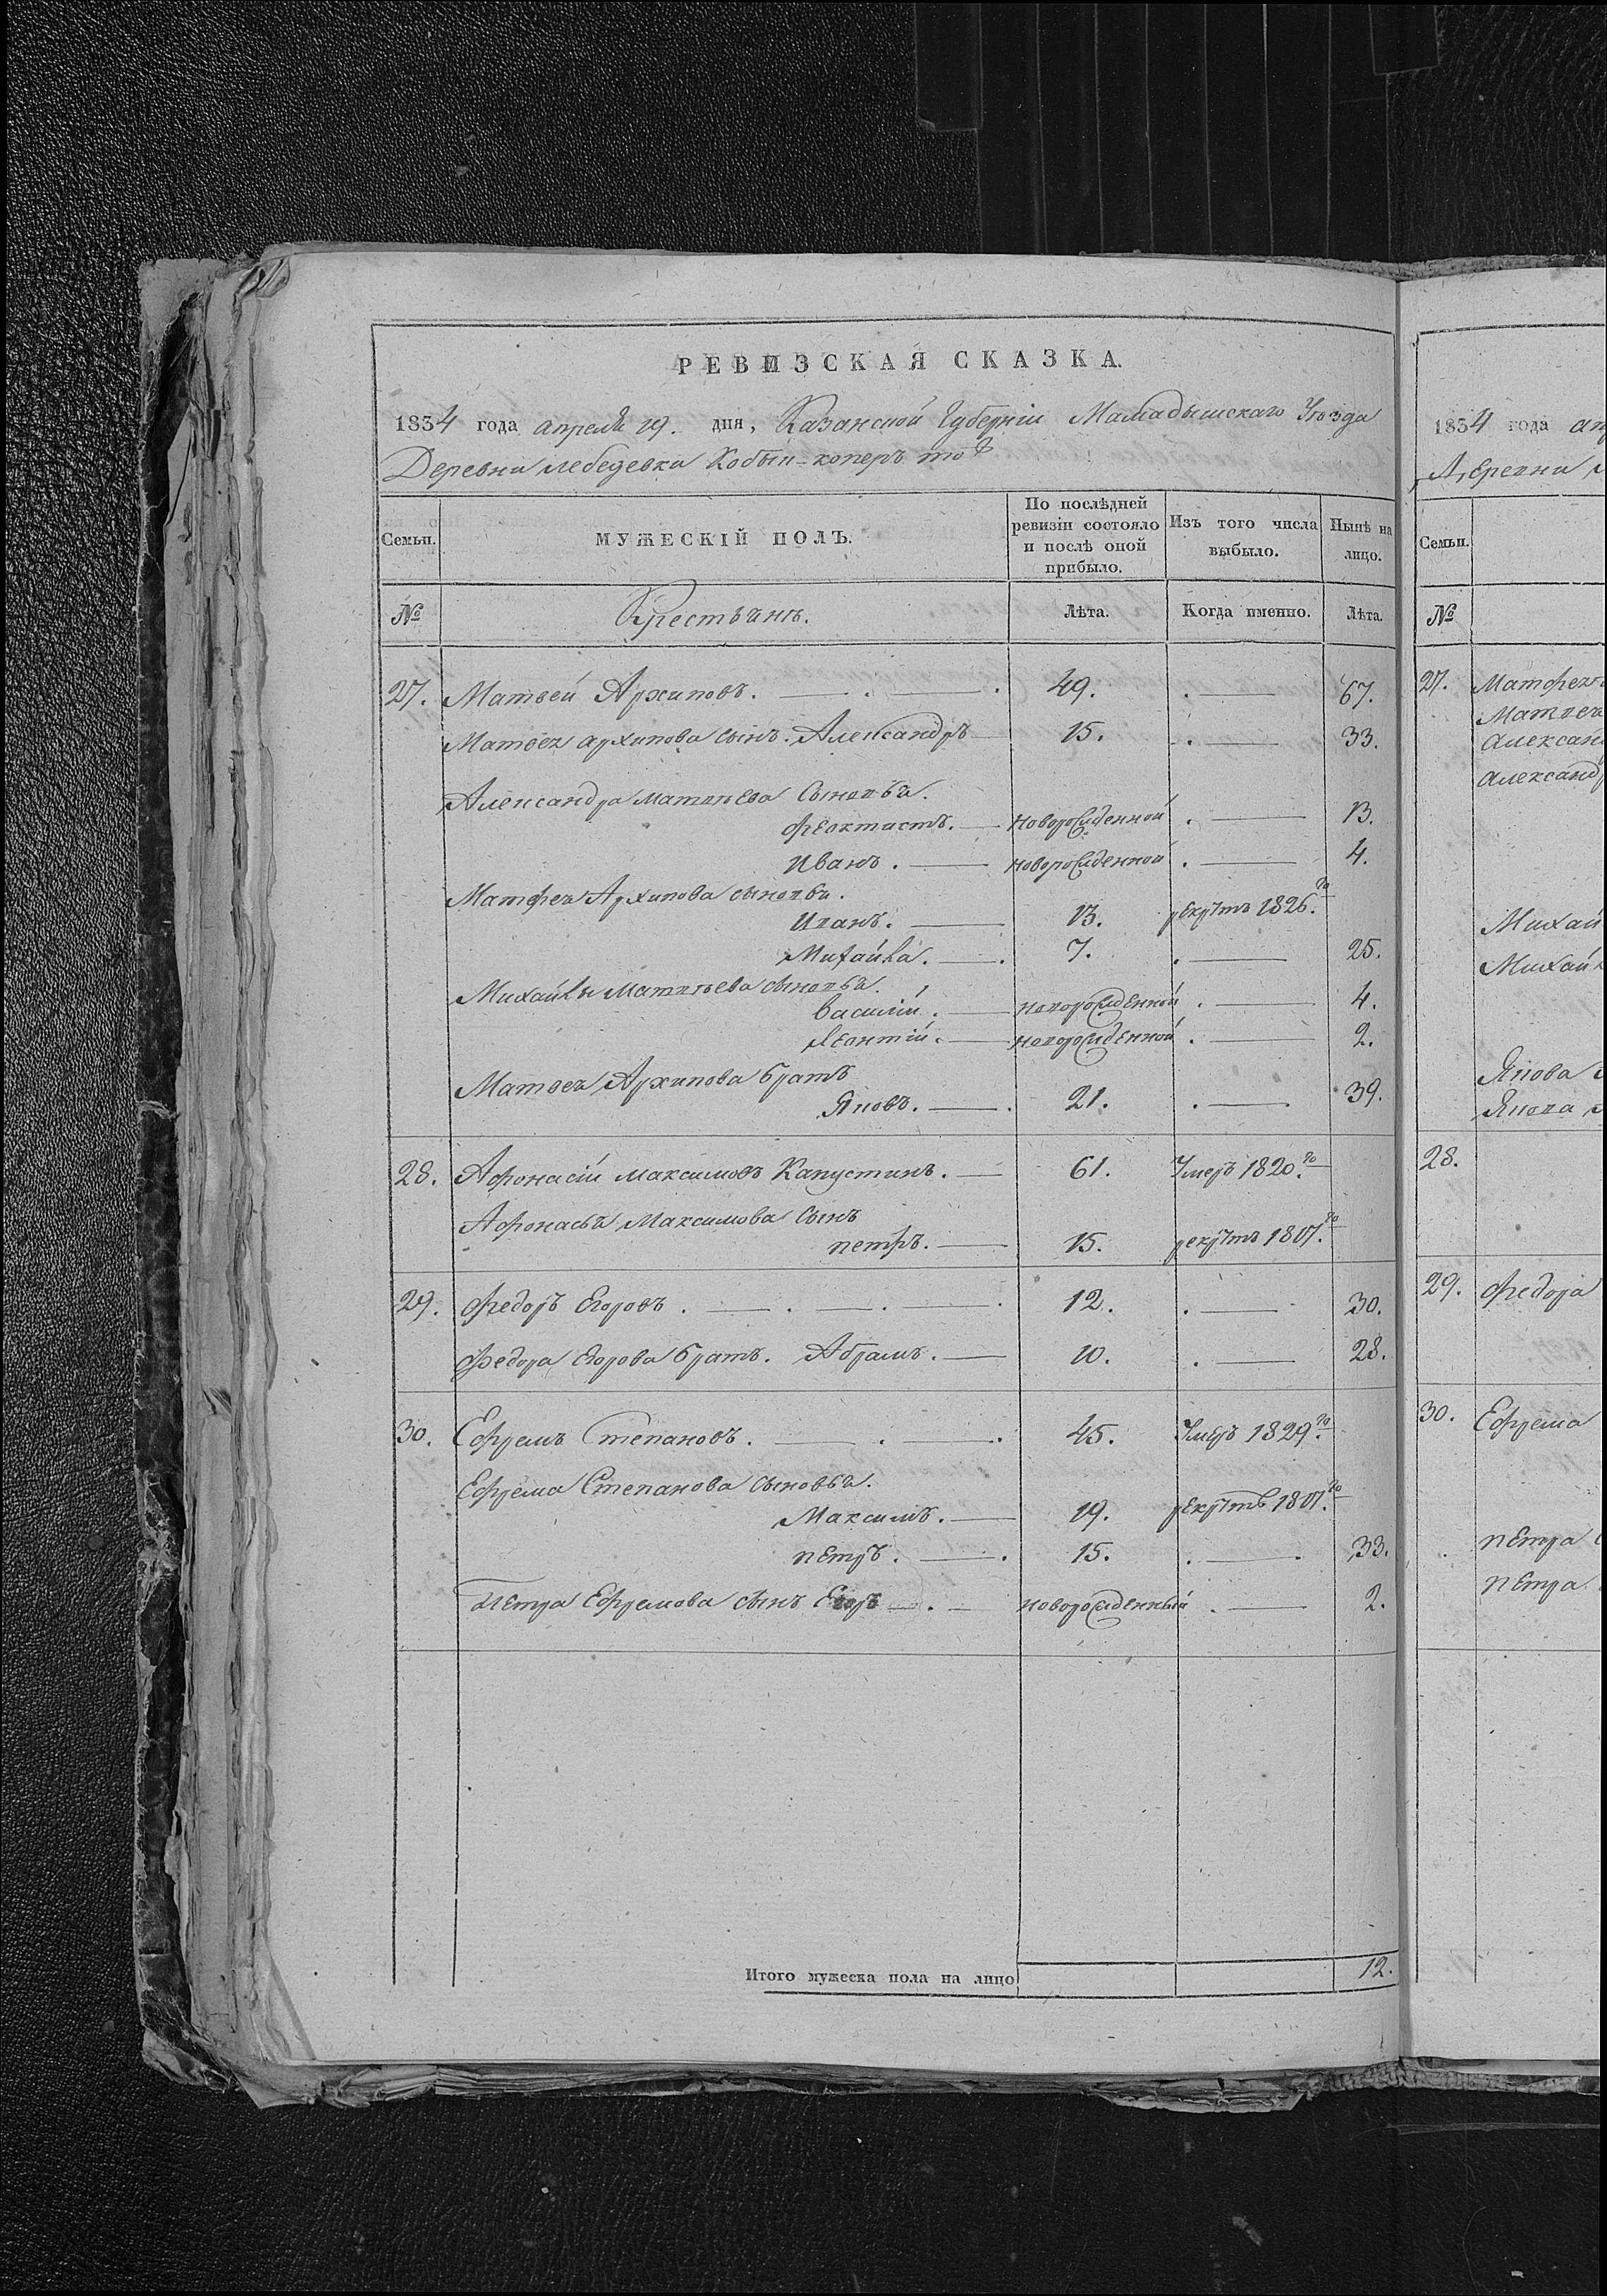 РЕВИЗСКАЯ СКАЗКА.
1834 года апреля 19. дня, Казанской Губерніи Мамадышскаго Уѣзда
Деревни Лебедевки Кобык-коперъ тоѣ
Семьи.
МУЖЕСКІЙ ПОЛЪ.
По послѣдней ревизіи состояло и послѣ оной прибыло.
Изъ того числа выбыло.
Нынѣ на лицо.
№
Крестьянъ.
Лѣта.
Когда именно.
Лѣта.
27. Матвей Архиповъ. 49. 67.
Матвея архипова сынъ. Александръ 15. 33.
Александра матвѣева Сыновья.
Феоктистъ. новорожденной 13.
Иванъ. новорожденной 4.
Матфея Архипова сыновья.
Иванъ. 13. рекрутъ 1826го
Михайла. 7. 25.
Михайлы Матвѣева сыновья.
Василій. новорожденной 4.
Леонтій. новорожденной 2.
Матвея Архипова братъ
Яковъ. 21. 39.
28. Афонасій Максимовъ Капустинъ. 61. Умеръ 1820.го
Афонасья Максимова Сынъ
петръ. 15. рекрутъ 1807.го
29. Федоръ Егоровъ. 12. 30.
Федора Егорова братъ. Абрамъ. 10. 28.
30. Ефремъ Степановъ. 45. Умеръ 1829.го
Ефрема Степанова сыновья.
Максимъ. 19. рекрутъ 1807.го
петръ. 15. 33.
Петра Ефремова сынъ Егоръ новорожденный 2.
Итого мужеска пола на лицо 12.
1834 года
Деревни
Семьи.
№
27. Матфея
Матвея
Александ
Михай
Михай
Якова
Якова
28.
29. Федора
30. Ефрема
петра
петра